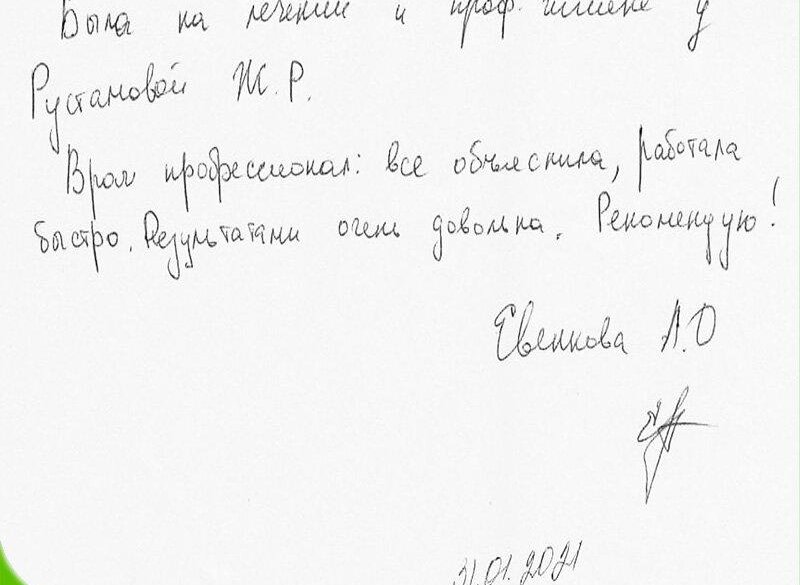 Была на лечении и проф. гигиене у
Рустамовой Ж.Р.
Врач профессионал: все объяснила, работала
быстро. Результатами очень довольна. Рекомендую!
Евенкова А.О
31.01.2021